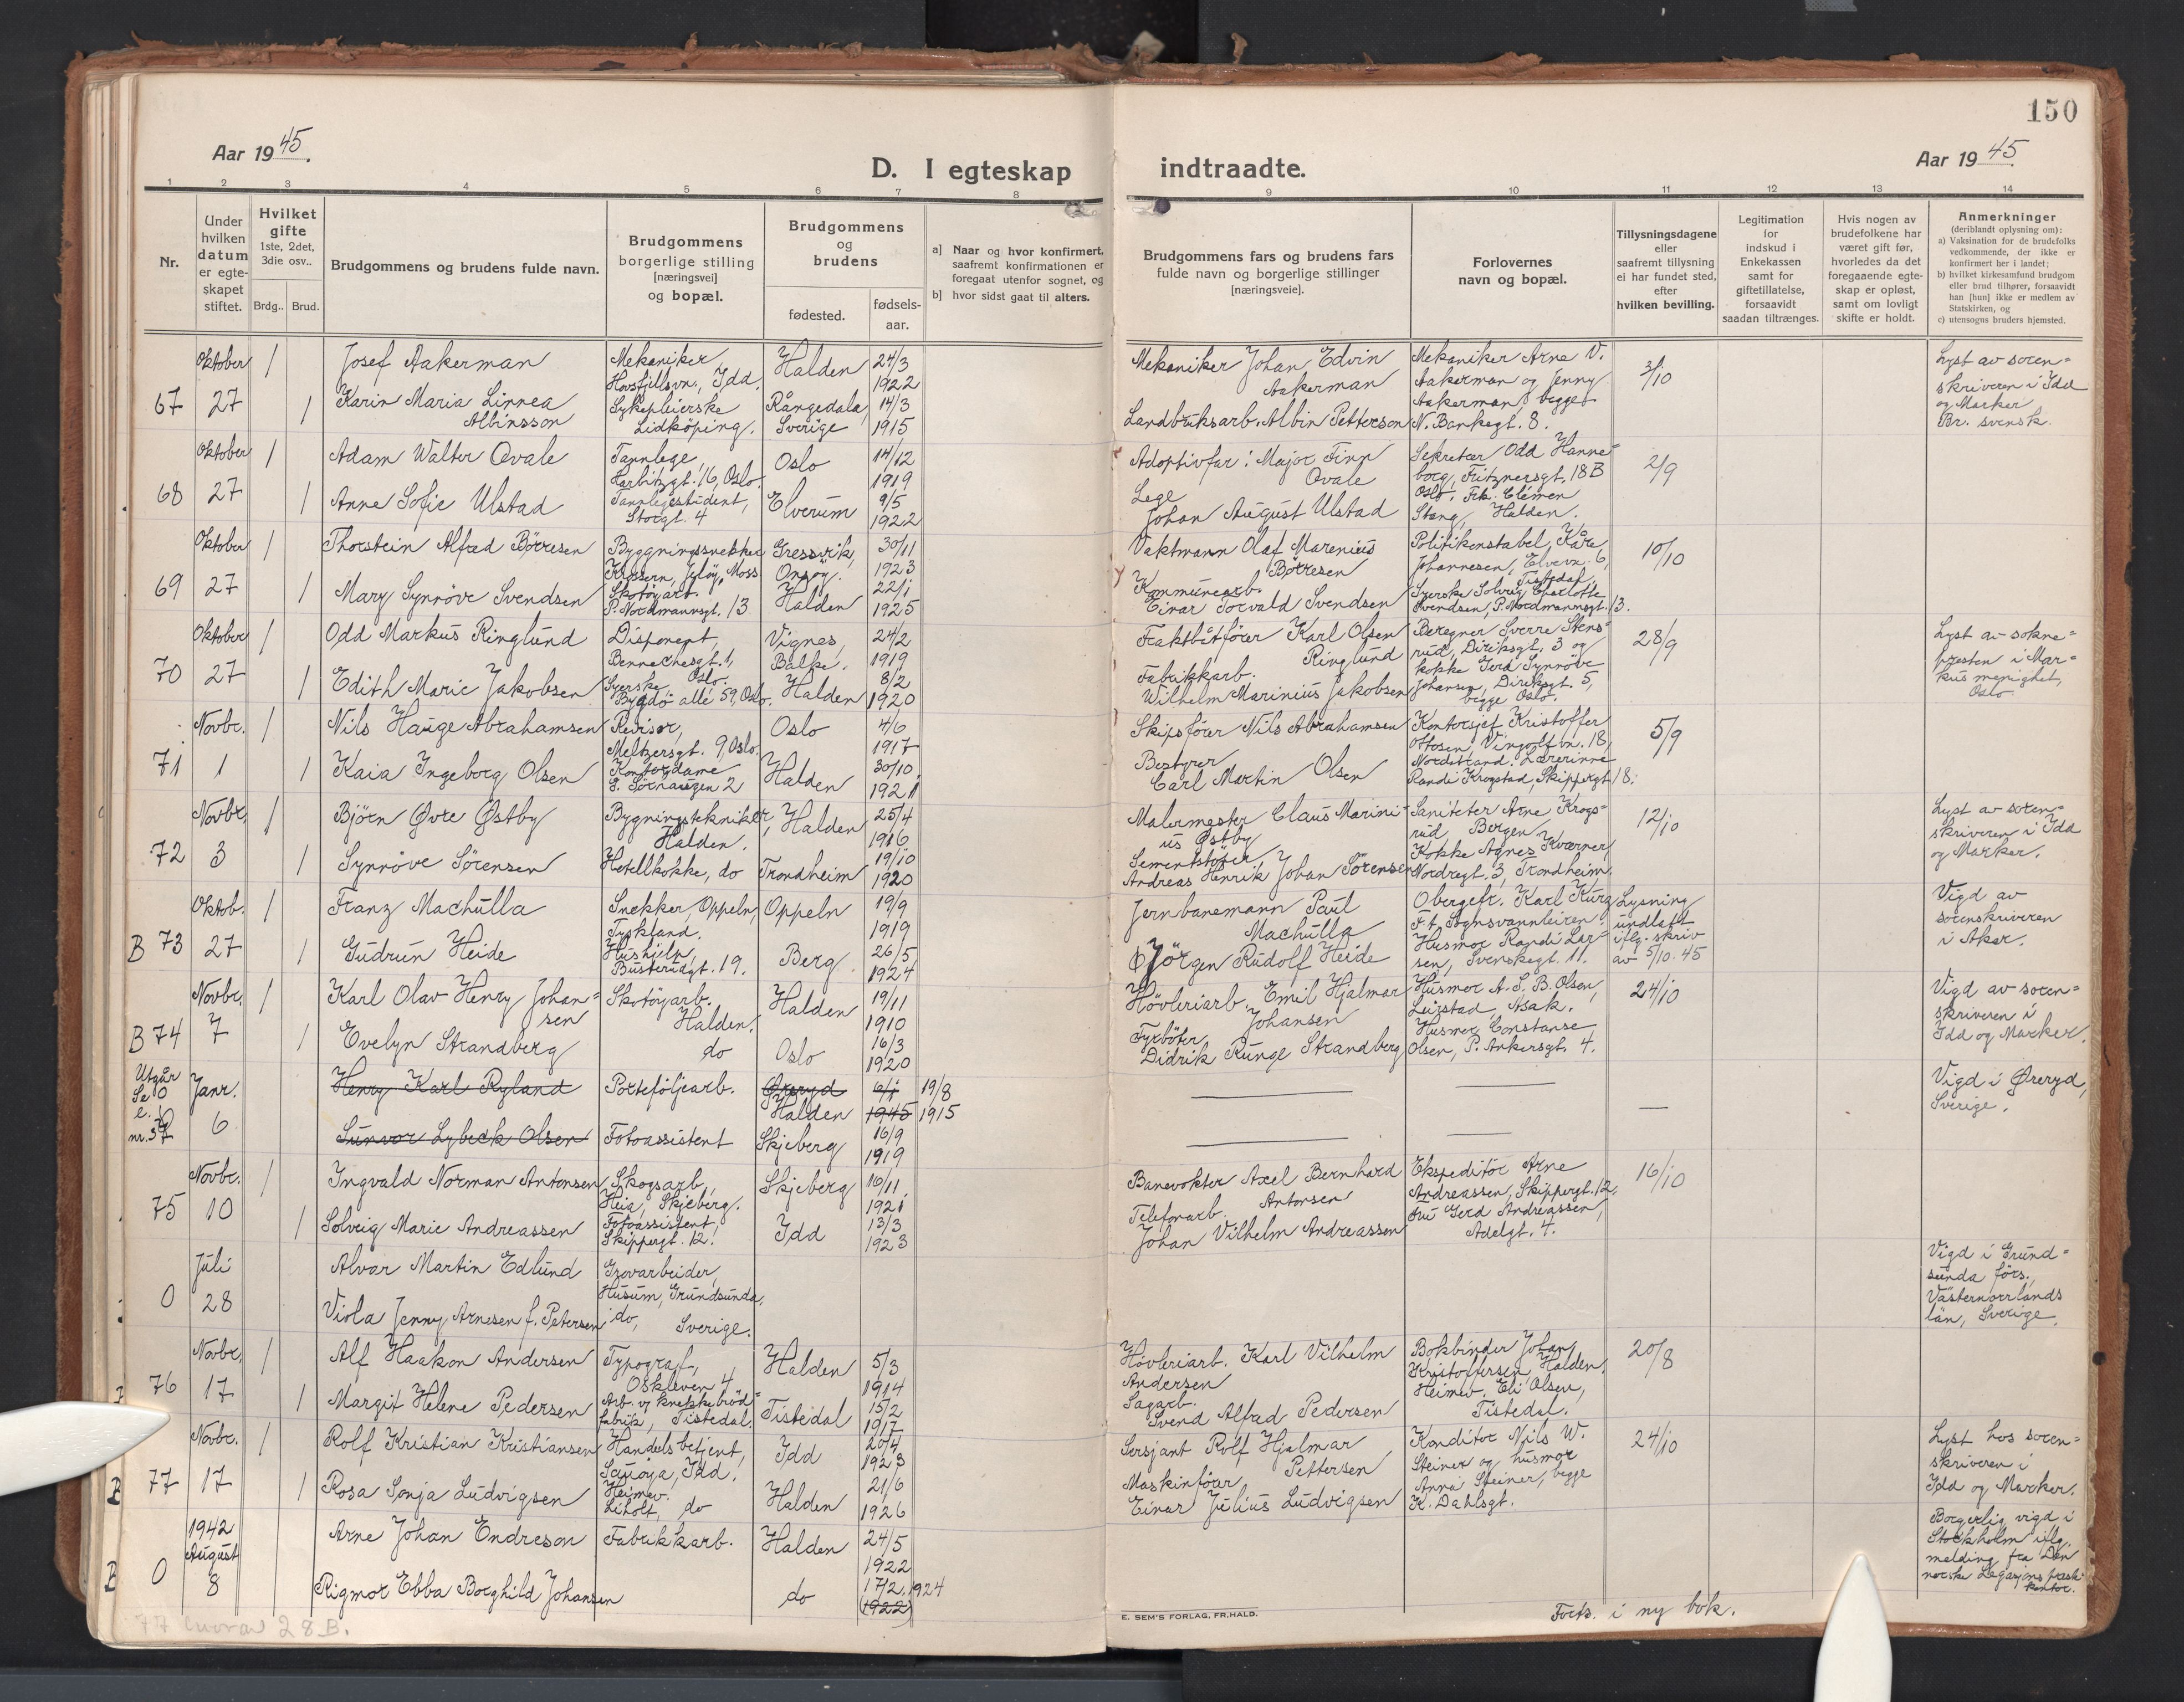 150
Aar 1945.
D. I egteskap indtraadte.
Aar 1945
1 2 3 4 5 6 7 8 9 10 11 12 13 14
Nr.
Under hvilken datum er egteskapet stiftet.
Hvilket gifte 1ste, 2det, 3die osv..
Brdg.. Brud.
Brudgommens og brudens fulde navn.
Brudgommens borgerlige stilling [næringsvei] og bopæl.
Brudgommens og brudens
fødested.
fødsels-aar.
a] Naar og hvor konfirmert, saafremt konfirmationen er foregaat utenfor sognet, og
b] hvor sidst gaat til alters.
Brudgommens fars og brudens fars fulde navn og borgerlige stillinger [næringsveie].
Forlovernes navn og bopæl.
Tillysningsdagene eller saafremt tillysning ei har fundet sted, efter hvilken bevilling.
Legitimation for indskud i Enkekassen samt for giftetillatelse, forsaavidt saadan tiltrænges.
Hvis nogen av brudefolkene har været gift før, hvorledes da det foregaaende egteskap er opløst, samt om lovligt skifte er holdt.
Anmerkninger (deriblandt oplysning om):
a) Vaksination for de brudefolks vedkommende, der ikke er konfirmert her i landet;
b) hvilket kirkesamfund brudgom eller brud tilhører, forsaavidt han [hun] ikke er medlem av Statskirken, og
c) utensogns bruders hjemsted.
67 Oktober 27 1 Josef Aakerman Mekaniker, Idd. Halden 24/3 1922 Mekaniker Johan Edvin Aakerman Mekaniker Arne V. Aakerman og Jenny Aakerman, begge N. Bankegt. 8. 3/10 Lyst av sorenskriveren i Idd og Marker
1 Karin Maria Linnea Albinsson Sykepleierske Lidköping. Rångedala, Sverige 14/3 1915 Landbruksarb. Albin Petterson Br. svensk.
68 Oktober 27 1 Adam Walter Qvale Tannlege, Harbitzgt. 16, Oslo. Oslo 14/12 1919 Adoptivfar: Major Finn Qvale Sekretær Odd Hanneborg, Fritznersgt. 18B Oslo. Frk. Clémen Stang, Halden. 2/9
1 Anne Sofie Ulstad Tannlegestudent, Storgt. 4 Elverum 9/5 1922 Lege Johan August Ulstad
69 Oktober 27 1 Thorstein Alfred Börresen Byggningssnekker Jeløy, Moss Gressvik, Onsøy. 30/11 1923 Vaktmann Olaf Marenius Börresen Politikonstabel Kåre Johannesen, Elvevn. 6, Tistedal. 10/10
1 Mary Synnöve Svendsen Skotøyarb. P. Nordmannsgt. 13 Halden 22/1 1925 Kommunearb. Einar Torvald Svendsen Syerske Solveig Charlotte Svendsen, P. Nordmannsgt. 13.
70 Oktober 27 1 Odd Markus Ringlund Disponent, Bennechesgt. 1, Oslo. Vignes, Balke. 24/2 1919 Fraktbåtförer Karl Olsen Ringlund Beregner Sverre Stensrud, Diriksgt. 3 og kokke Gerd Synnöve Johansen, Diriksgt. 5, begge Oslo. 28/9 Lyst av soknepresten i Markus menighet, Oslo.
1 Edith Marie Jakobsen Syerske, Bygdö allé 59, Oslo. Halden 8/2 1920 Fabrikkarb. Wilhelm Marinius Jakobsen
71 Novbr. 1 1 Nils Hauge Abrahamsen Revisor, Meltzersgt. 9, Oslo. Oslo 4/6 1917 Skipsförer Nils Abrahamsen Kontorsjef Kristoffer Ottosen, Vingolfvn. 18, Nordstrand. Lærerinne Randi Krogstad, Skippergt. 18. 5/9
1 Kaia Ingeborg Olsen Kontordame 2 Halden 30/10 1921 Bestyrer Carl Martin Olsen
72 Novbr. 3 1 Björn Øvre Østby Bygningstekniker, Halden. Halden 25/4 1916 Malermester Claus Marinius Østby Saniteter Arne Krogsrud, Bergen. Kokke Agnes Kværner, Nordregt. 3, Trondheim. 12/10 Lyst av sorenskriveren i Idd og Marker.
1 Synnöve Sörensen Hotellkokke, do Trondheim 19/10 1920 Sementstöper Andreas Henrik Johan Sörensen
B 73 Oktob. 27 1 Franz Machulla Snekker, Oppeln, Tyskland. Oppeln 19/9 1919 Jernbanemann Paul Machulla Obergefr. Karl Kurz, F.t. Sognsvannleiren Husmor Randi Larsen, Svenskegt. 11. Lysning undlatt iflg. skriv av 5/10-45 Vigd av sorenskriveren i Aker.
1 Gudrun Heide Hushjelp, Busterudgt. 19. Berg 26/5 1924 Jörgen Rudolf Heide
B 74 Novbr. 7 1 Karl Olav Henry Johansen Skotøyarb. Halden. Halden 19/11 1910 Hövleriarb. Emil Hjalmar Johansen Husmor A. S. B. Olsen, Leirstad, Asak. Husmor Constanse Olsen, P. Ankersgt. 4. 24/10 Vigd av sorenskriveren i Idd og Marker.
1 Evelyn Strandberg do Oslo 16/3 1920 Fyrböter Didrik Runge Strandberg
Utgår Se nr. 37
0 Janr. 6 Henry Karl Ryland Porteföljearb. Øreryd Halden 6/1 1945 19/8 1915 Vigd i Øreryd, Sverige.
Sunvor Lybeck Olsen Fotoassistent Skjeberg 16/9 1919
75 Novbr. 10 1 Ingvald Norman Antonsen Skogsarb., Heia, Skjeberg. Skjeberg 16/11 1921 Banevokter Axel Bernhard Antonsen Ekspeditör Arne Andreassen, Skippergt. 12, fru Gerd Andreassen, Adelgt. 4. 16/10
1 Solveig Marie Andreassen Fotoassistent, Skippergt. 12. Idd 13/3 1923 Telefonarb. Johan Vilhelm Andreassen
0 Juli 28 Alvar Martin Edlund Grovarbeider, Husum, Grundsunda, Sverige. Vigd i Grundsunda förs., Västernorrlands län, Sverige.
Viola Jenny Arnesen f. Petersen do,
76 Novbr. 17 1 Alf Haakon Andersen Typograf, Oskleven 4 Halden 5/3 1914 Hövleriarb. Karl Vilhelm Andersen Bokbinder Johan Kristoffersen, Halden. Heimev. Eli Olsen, Tistedal. 20/8
1 Margit Helene Pedersen Arb. v. knekkebrödfabrik, Tistedal. Tistedal 15/2 1917 Sagarb. Svend Alfred Pedersen
B 77 Novbr. 17 1 Rolf Kristian Kristiansen Handelsbetjent, Sauöya, Idd. Idd 20/4 1923 Sersjant Rolf Hjalmar Pettersen Konditor Nils W. Steiner og husmor Anna Steiner, begge K. Dahlsgt. 24/10 Lyst hos sorenskriveren i Idd og Marker.
1 Rosa Sonja Ludvigsen Heimev. Liholt, do Halden 21/6 1926 Maskinförer Einar Julius Ludvigsen
B 0 1942 August 8 Arne Johan Endreson Fabrikkarb. Halden 24/5 1922 Borgerlig vigd i Stockholm iflg. melding fra Den norske Legasjons prestekontor.
Rigmor Ebba Borghild Johansen do 17/2 1922 1924
77 hvorav 28 B.
E. SEM'S FORLAG, FR.HALD.
Forts. i ny bok.